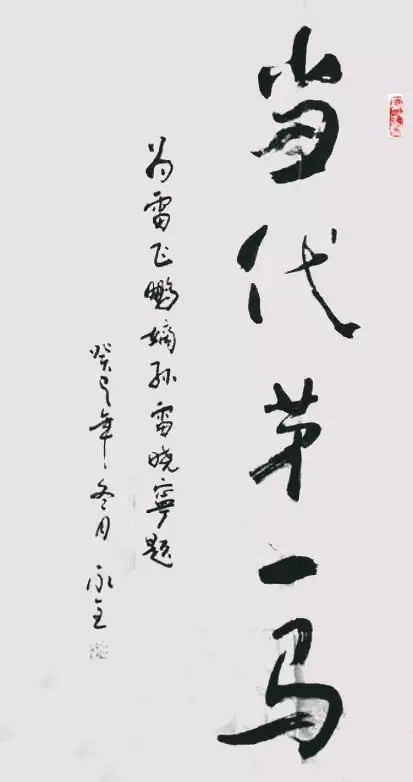 当代第一马
为雷正鹏嫡孙雷晓宁题
癸巳年冬月 永玉